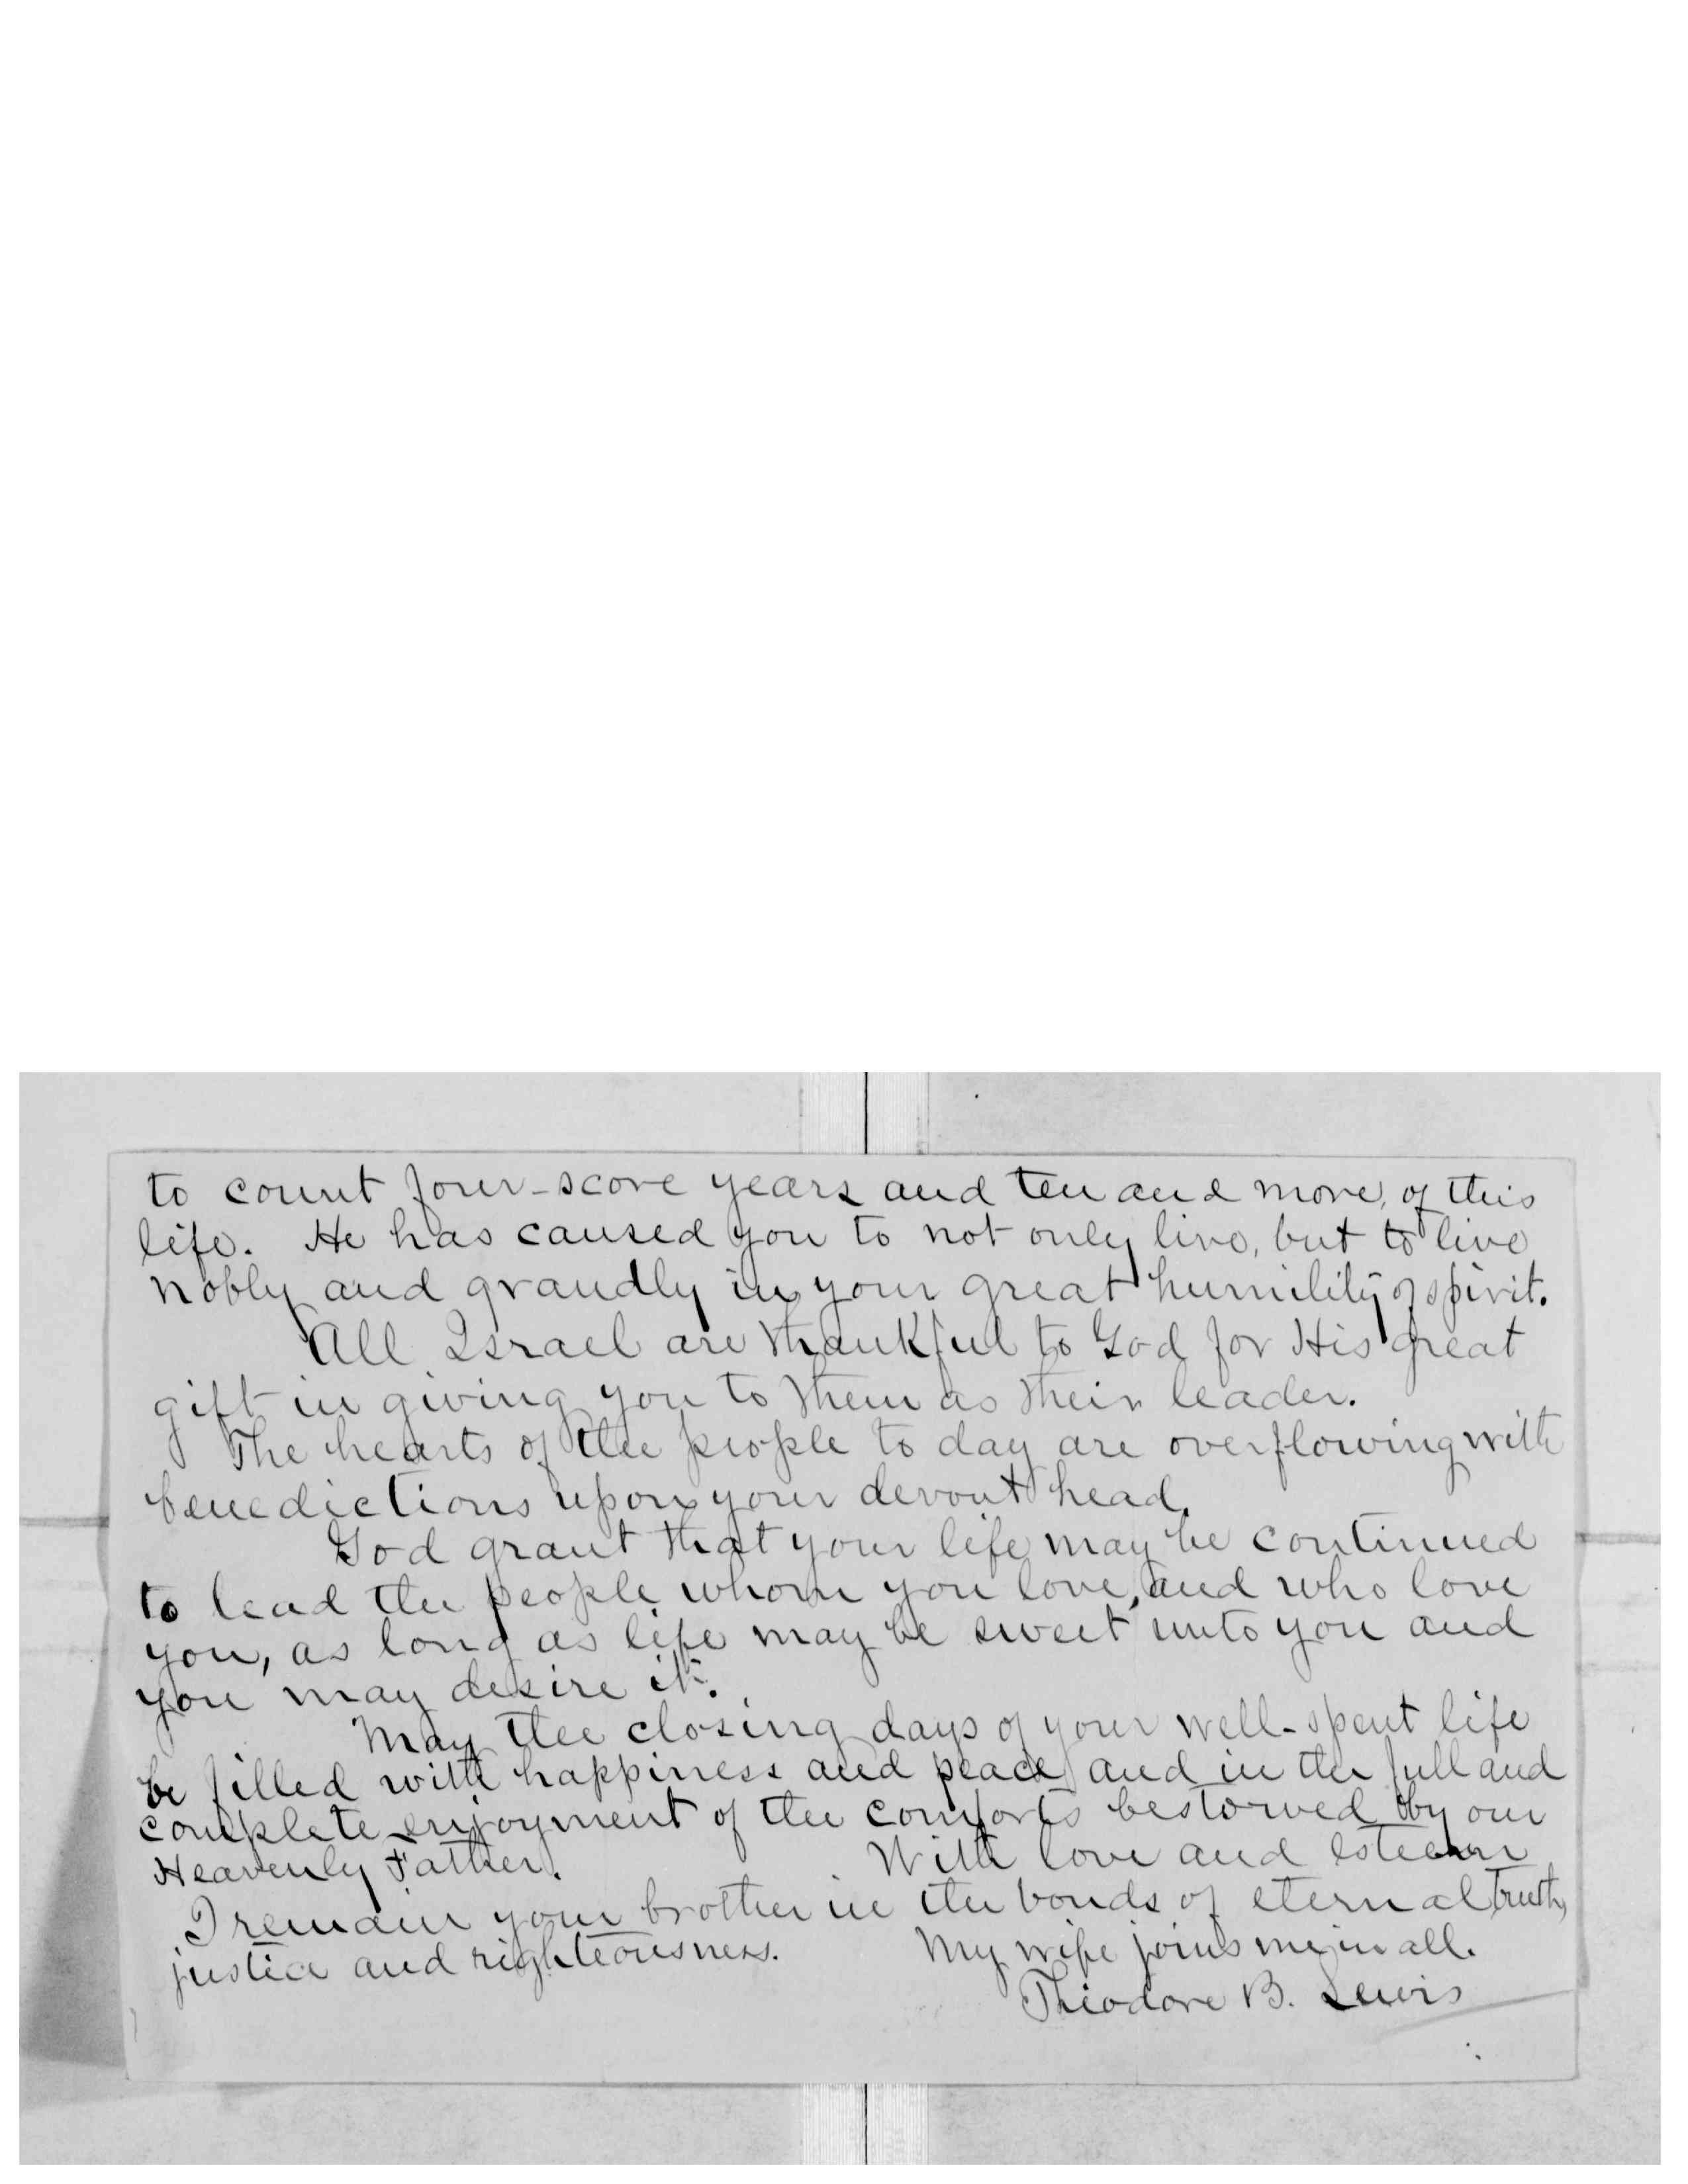 to count four-score years and ten and more, of this
life. He has caused you to not only live, but to live
nobly and grandly in your great humility of spirit.
All Israel are thankful to God for His great
gift in giving you to them as their leader.
The hearts of the people to day are overflowing with
benedictions upon your devout head.
God grant that your life may be continued
to lead the people whom you love, and who love
you, as long as life may be sweet unto you and
you may desire it.
May the closing days of your well-spent life
be filled with happiness and peace and in the full and
complete enjoyment of the comforts bestowed by our
Heavenly Father. With love and esteem
I remain your brother in the bonds of eternal truth,
justice and righteousness. My wife joins me in all.
Theodore B. Lewis